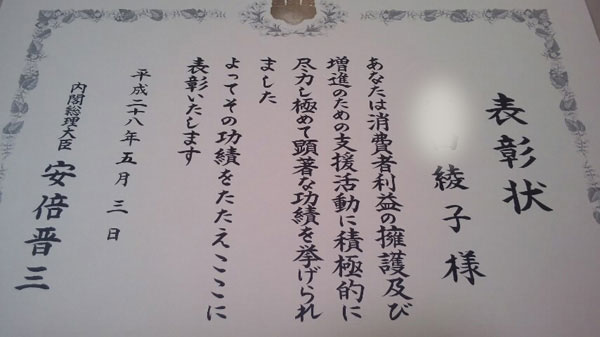 表彰状
綾子様
あなたは消費者利益の擁護及び
増進のための支援活動に積極的に
尽力し極めて顕著な功績を挙げられ
ました
よってその功績をたたえここに
表彰いたします
平成二十八年五月三日
内閣総理大臣 安倍晋三